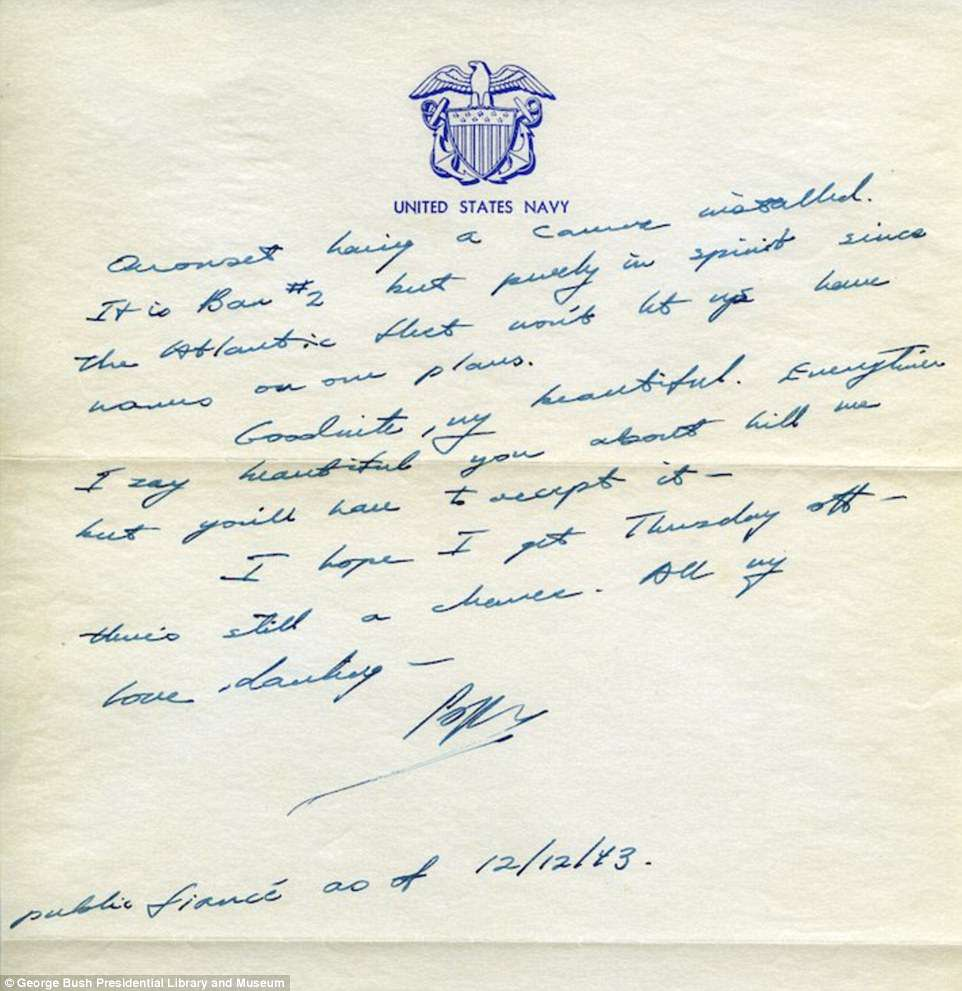 UNITED STATES NAVY
Quonset having a camera installed.
It is Bar #2 but purely in spirit since
the Atlantic fleet won't let us have
names on our planes.
Goodnite, my beautiful. Everytime
I say beautiful you about kill me
but you'll have to accept it —
I hope I get Thursday off —
there's still a chance. All my
love darling —
Poppy
public fiancé as of 12/12/43.
© George Bush Presidential Library and Museum